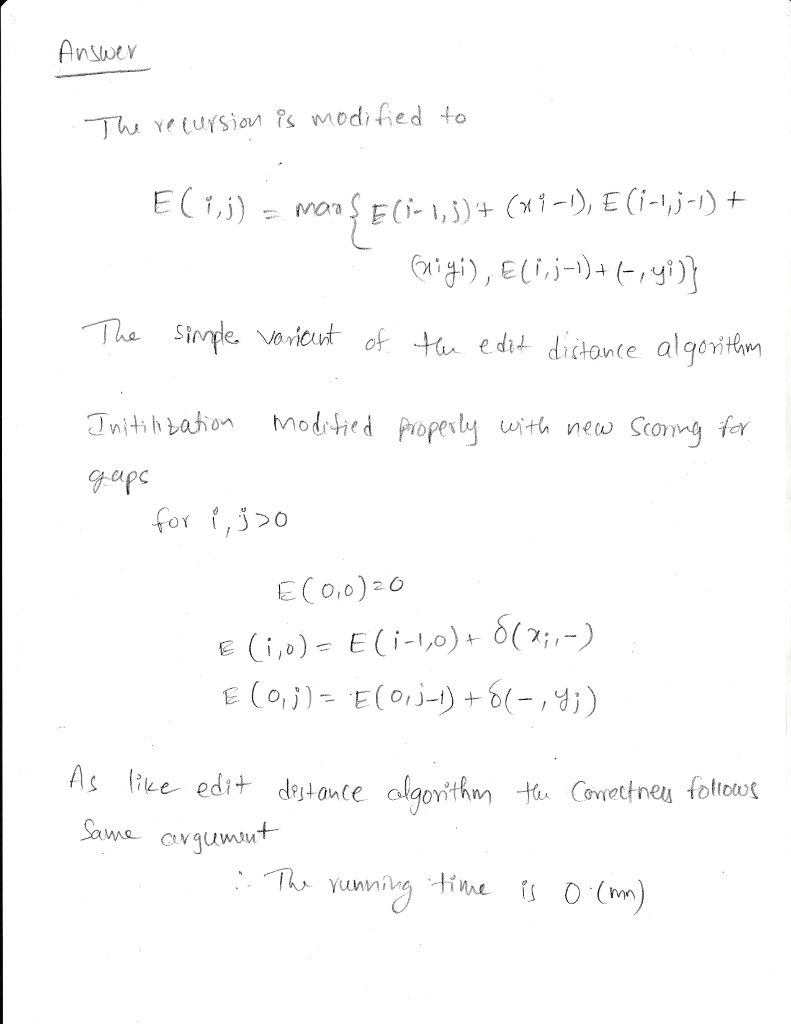 Answer
The recursion is modified to
E(i,j) = max{E(i-1,j)+(xi-1), E(i-1,j-1)+
(xiyi), E(i,j-1)+(-,yi)}
The simple variant of the edit distance algorithm
Initilization modified properly with new scoring for
gaps
for i,j>0
E(0,0)=0
E(i,0) = E(i-1,0)+ δ(xi,-)
E(0,j) = E(0,j-1)+δ(-,yj)
As like edit distance algorithm the correctness follows
same argument
∴ The running time is O(mn)